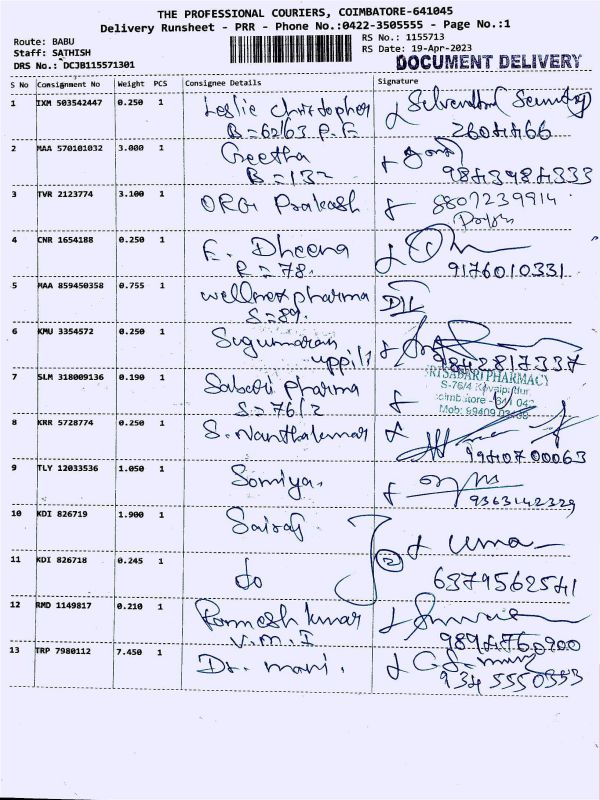 THE PROFESSIONAL COURIERS, COIMBATORE-641045
Delivery Runsheet - PRR - Phone No.:0422-3505555 - Page No.:1
Route: BABU
Staff: SATHISH
DRS No.: DCJB115571301
RS No.: 1155713
RS Date: 19-Apr-2023
DOCUMENT DELIVERY
S No Consignment No Weight PCS Consignee Details Signature
1 IXM 503542447 0.250 1 Leslie Christopher
B=62/63 P.F 2604466
2 MAA 570101032 3.000 1 Geetha
B=132 9843984333
3 TVR 2123774 3.100 1 ORG Prakash 8807239914
4 CNR 1654188 0.250 1 E. Dheena
R=78. 9176010331
5 MAA 859450358 0.755 1 wellnex pharma
S=89.
6 KMU 3354572 0.250 1 Sugumaran
uppili 9842817337
7 SLM 318009136 0.190 1 Sabari pharma
S=76/2
SRI SABARI PHARMACY
S-76/4
Coimbatore - 641 042
Mob: 99409
8 KRR 5728774 0.250 1 S. Nanthakumar
9940700063
9 TLY 12033536 1.050 1 Somiya.
9363142329
10 KDI 826719 1.900 1 Sairaj uma
11 KDI 826718 0.245 1 do 2 6379562541
12 RMD 1149817 0.210 1 Ramesh kumar
V.M.I 9894760200
13 TRP 7980112 7.450 1 Dr. mani.
9345550353